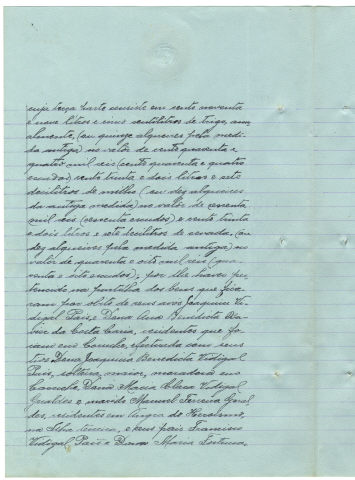 cuja terça parte consiste em cento noventa
e nove litros e cinco centilitros de trigo, anu-
almente, (ou quinze alqueires pela medi-
da antiga) no valor de cento quarenta e
quatro mil reis (cento quarenta e quatro
escudos) cento trinta e dois litros e sete
decilitros de milho (ou dez alqueires
da antiga medida) no valor de sessenta
mil reis (sessenta escudos) e cento trinta
e dois litros e sete decilitros de cevada, (ou
dez alqueires pela medida antiga) no
valor de quarenta e oito mil reis (qua-
renta e oito escudos), por lhe haver per-
tencido na partilha dos bens que fica-
ram por obito de seus avos Joaquim Vi-
digal Pais e Dona Ana Benedicta
da Costa Caria, residentes que fo-
ram em Coruche, efectuada com seus
tios Dona Joaquina Benedicta Vidigal
Pais, solteira, maior, moradora em
Coruche, Dona Maria Clara Vidigal
Geraldes e marido Manuel Ferreira Geral-
des, residentes em Angra do Heroismo,
na Ilha terceira, e seus pais Francisco
Vidigal Pais e Dona Maria